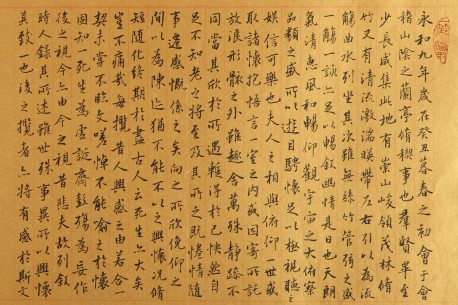 永和九年歲在癸丑暮春之初會于會
稽山陰之蘭亭脩稧事也羣賢畢至
少長咸集此地有崇山峻領茂林脩
竹又有清流激湍暎帶左右引以為流
觴曲水列坐其次雖無絲竹管弦之盛
一觴一詠亦足以暢敘幽情是日也天朗
氣清惠風和暢仰觀宇宙之大俯察
品類之盛所以遊目騁懷足以極視聽之
娛信可樂也夫人之相與俯仰一世或
取諸懷抱悟言一室之內或因寄所託
放浪形骸之外雖趣舍萬殊靜躁不
同當其欣於所遇暫得於己快然自
足不知老之將至及其所之既惓情隨
事遷感慨係之矣向之所欣俛仰之
間以為陳迹猶不能不以之興懷況脩
短隨化終期於盡古人云死生亦大矣
豈不痛哉每攬昔人興感之由若合一
契未嘗不臨文嗟悼不能喻之於懷
固知一死生為虛誕齊彭殤為妄作
後之視今亦由今之視昔悲夫故列敘
時人錄其所述雖世殊事異所以興懷
其致一也後之攬者亦將有感於斯文